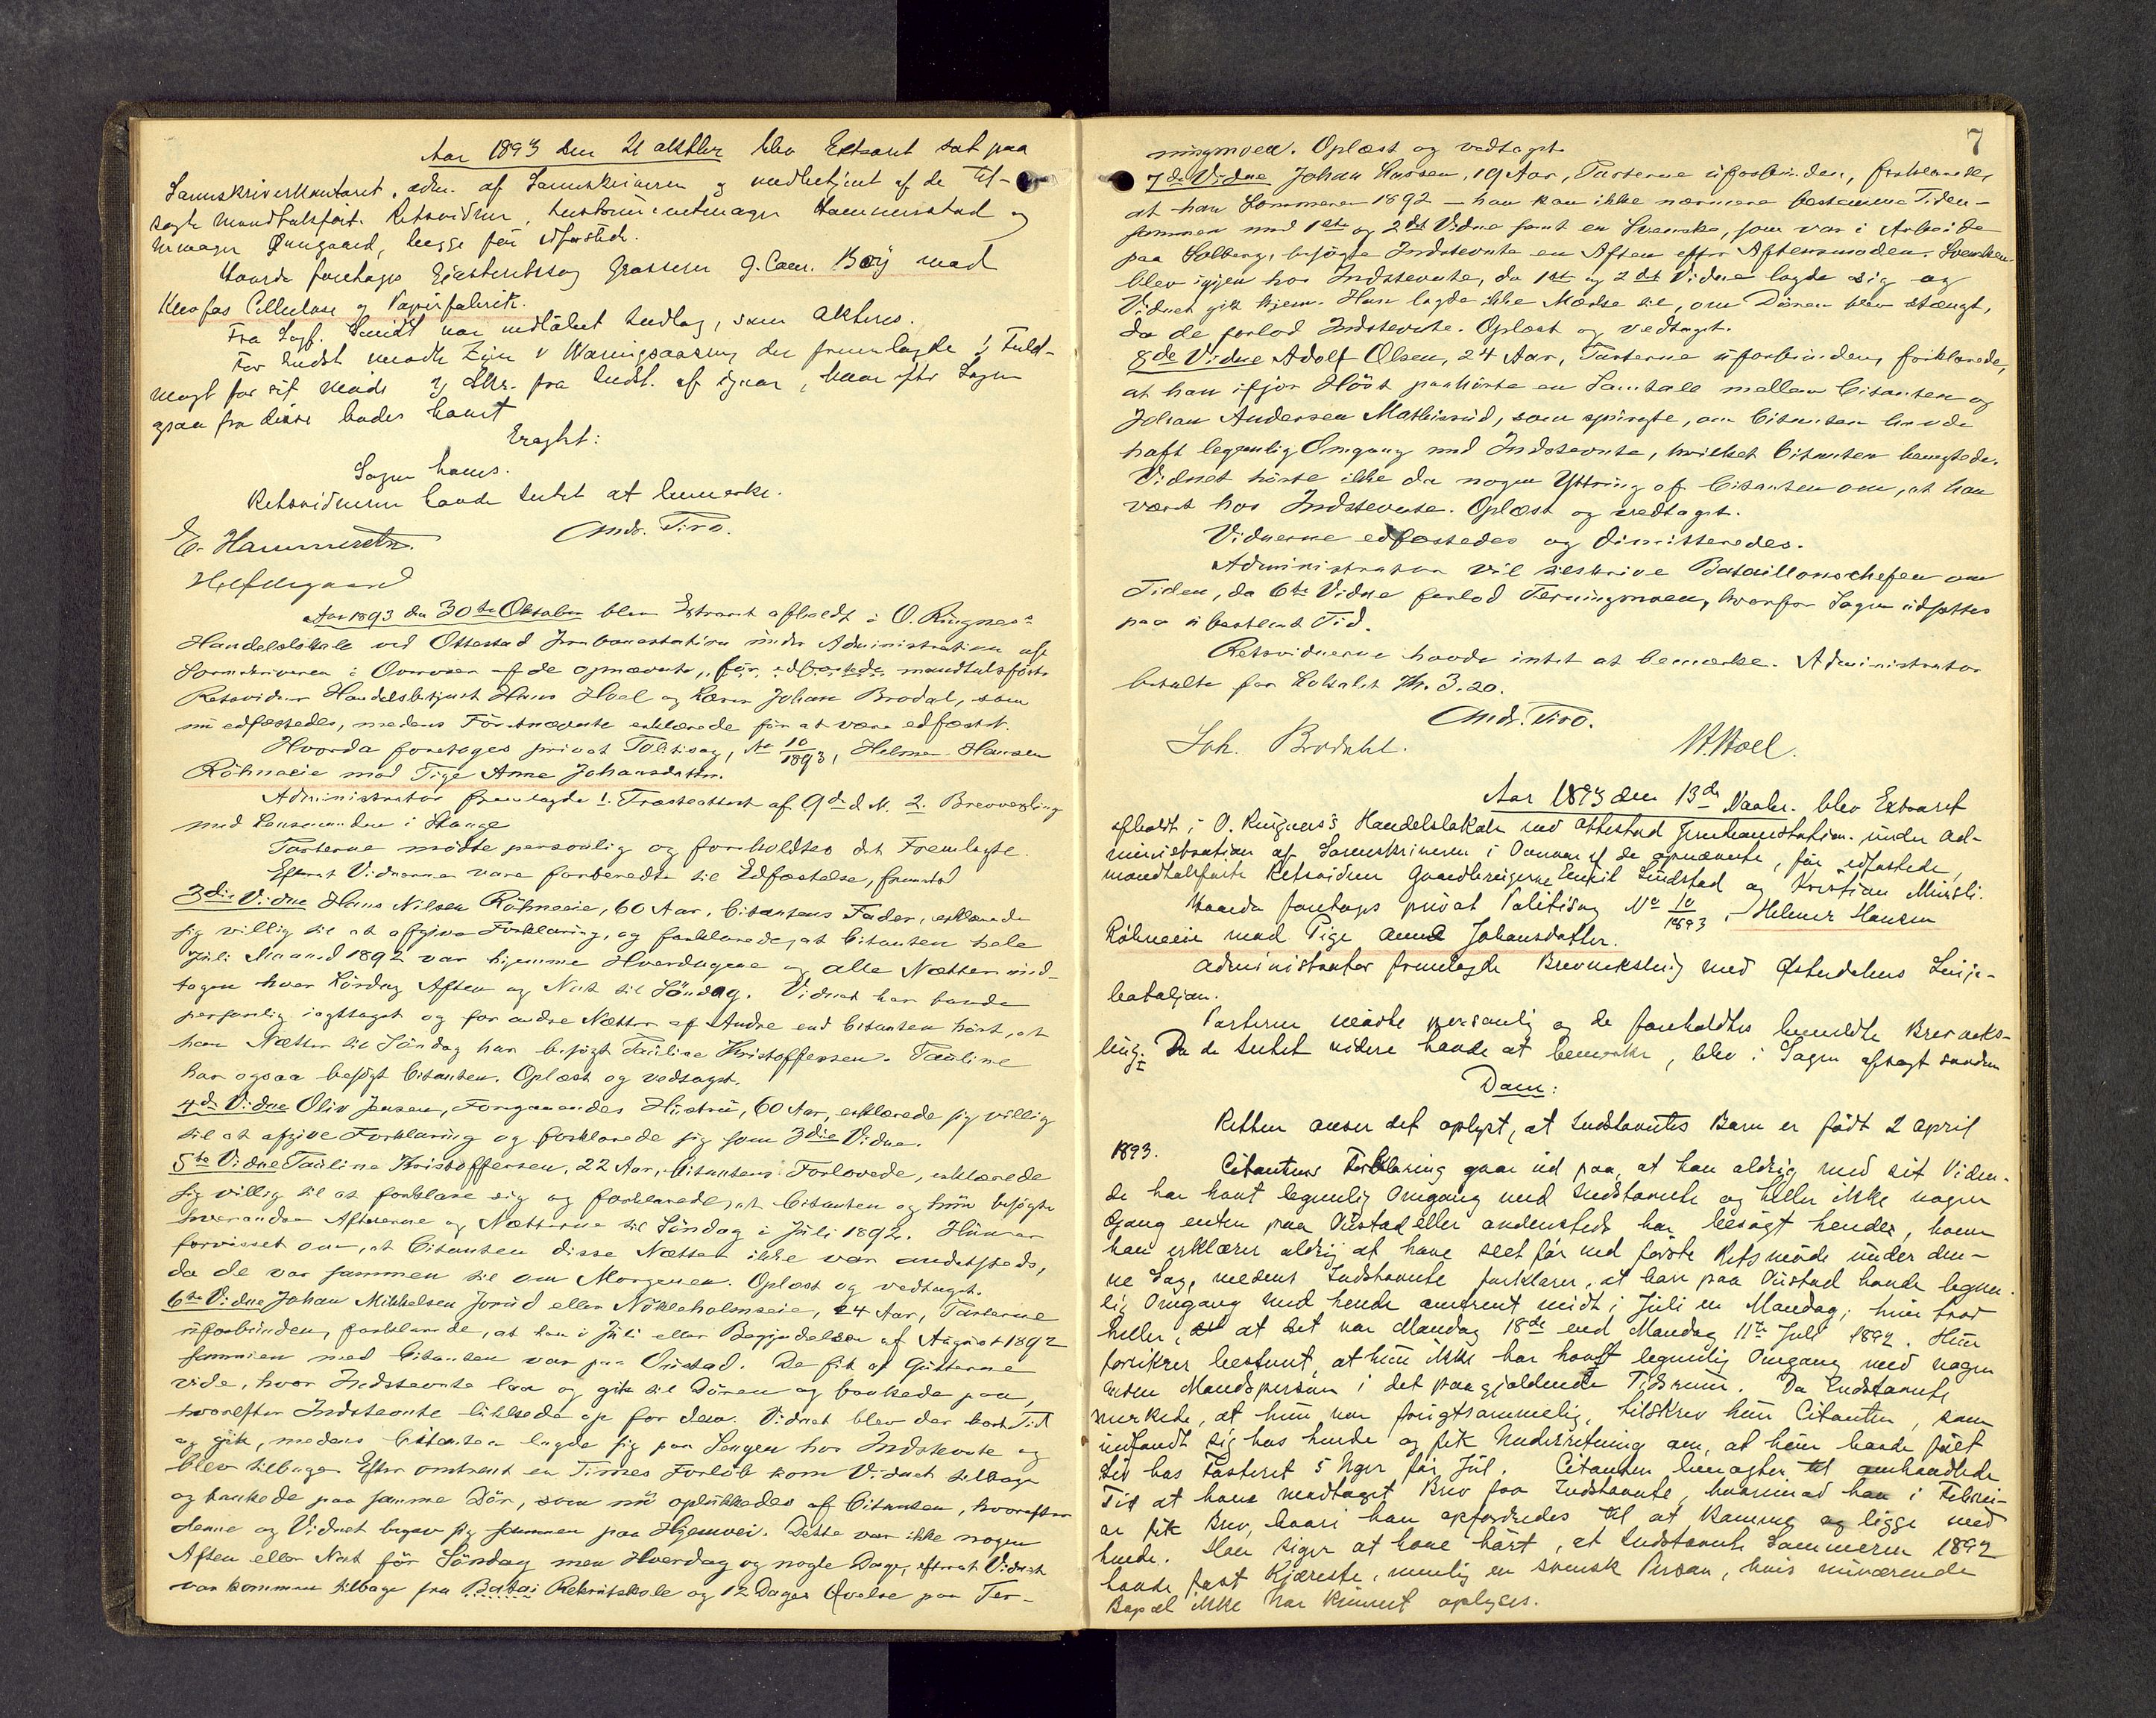 Aar 1893 den 21 oktbr blev Extraret sat paa
Sorenskriverkontoret, adm. af Sorenskriveren og medbetjent af de til-
sagte mandtalsførte Retsvidner, Instrumentmager Hammerstad og
Urmager Øungaard, begge før edfæstede.
Hvorda foretages Gjæsteretssag Grosserer J. Cam. Bøÿ mod
Klevfos Cellulose og Papirfabrik.
Fra Sagf. Smidt var indløbet Indlæg, som akteres.
For Indst. mødte Zijn v Wæringsaasen der fremlagde 1, Fuld-
magt for sit Møde 2, Skr. fra Indst. af igaar, hvor efter Sagen
ogsaa fra disse bades hævet
Eragtet:
Sagen hæves.
Retsvidnerne havde Intet at bemærke.
E. Hammerstn. Andr. Tiro.
Aar 1893 den 30te Oktober blev Extraret afholdt i O. Ringnes's
Handelslokale ved Ottestad Jernbanestation under Administration af
Sorenskriveren i Overvær af de opnævnte, før edfæstede mandtalsførte
Retsvidner Handelsbetjent Hans Hoel og Lærer Johan Brodal, som
nu edfæstedes, medens Førstnævnte erklærede før at være edfæstet.
Hvorda foretoges privat Politisag, No 10/1893, Helmer Hansen
Röhneeie mod Pige Anne Johansdatter.
Administrator fremlagde 1. Præsteattest af 9de d.M. 2. Brevvexling
med Lensmanden i Stange
Parterne mödte personlig og foreholdtes det Fremlagte.
Efterat Vidnerne vare forberedte til Edfæstelse, fremstod
3die Vidne Hans Nilsen Röhneeie, 60 Aar, Citantens Fader, erklærede
sig villig til at afgive Forklaring, og forklarede, at Citanten hele
Juli Maaned 1892 var hjemme Hverdagene og alle Nætter und-
tagen hver Lördag Aften og Nat til Söndag. Vidnet har baade
personlig iagttaget og for andre Nætter af Andre end Citanten hört, at
han Nætter til Söndag har besögt Pauline Kristoffersen. Pauline
har ogsaa besögt Citanten. Oplæst og vedtaget.
4de Vidne Oliv Jensen, Foregaaendes Hustru, 60 Aar, erklærede sig villig
til at afgive Forklaring og forklarede sig som 3die Vidne.
5te Vidne Pauline Kristoffersen, 22 Aar, Citantens Forlovede, erklærede
sig villig til at forklare sig og forklarede, at Citanten og hun besögte
hverandre Aftenerne og Nætterne til Söndag i Juli 1892. Hun er
forvisset om, at Citanten disse Nætter ikke var andetsteds,
da de var sammen til om Morgenen. Oplæst og vedtaget.
6te Vidne Johan Mikkelsen Jorud eller Nökleholmseie, 24 Aar, Parterne
uforbunden, forklarede, at han i Juli eller Begyndelsen af August 1892
sammen med Citanten var paa Oustad. De fik af Gutterne
vide, hvor Indstevnte laa og gik til Dören og bankede paa,
hvorefter Indstevnte lukkede op for dem. Vidnet blev der kort Tid
og gik, medens Citanten lagde sig paa Sengen hos Indstevnte og
blev tilbage. Efter omtrent en Times Forlöb kom Vidnet tilbage
og bankede paa samme Dör, som nu oplukkedes af Citanten, hvorefter
denne og Vidnet begav sig sammen paa Hjemvei. Dette var ikke nogen
Aften eller Nat för Söndag men Hverdag og nogle Dage, efterat Vidnet
var kommen tilbage fra Batai Rekrutskole og 12 Dages Övelse paa Ter-
7
ningmoen. Oplæst og vedtaget.
7de Vidne Johan Hansen, 19 Aar, Parterne uforbunden, forklarede,
at han Sommeren 1892 – han kan ikke nærmere bestemme Tiden –
sammen med 1ste og 2det Vidne samt en Svenske, som var i Arbeide
paa Solberg, besögte Indstevnte en Aften efter Aftensmaden. Svensken
blev igjen hos Indstevnte, da 1ste og 2det Vidne lagde sig og
Vidnet gik hjem. Han lagde ikke Mærke til, om Dören blev stængt,
da de forlod Indstevnte. Oplæst og vedtaget.
8de Vidne Adolf Olsen, 24 Aar, Parterne uforbunden, forklarede,
at han ifjor Höst paahörte en Samtale mellem Citanten og
Johan Andersen Mathisrud, som spurgte, om Citanten havde
haft legemlig Omgang med Indstevnte, hvilket Citanten benegtede.
Vidnet hörte ikke da nogen Yttring af Citanten om, at han
været hos Indstevnte. Oplæst og vedtaget.
Vidnerne edfæstedes og dimitteredes.
Administrator vil tilskrive Bataillonschefen om
Tiden, da 6te Vidne forlod Terningmoen, hvorfor Sagen udsattes
paa ubestemt Tid.
Retsvidnerne havde intet at bemærke. Administrator
betalte for Lokalet Kr. 3.20.
Andr. Tiro.
Joh. Brodahl. H. Hoel.
Aar 1893 den 13de Novbr. blev Extraret
afholdt i O. Ringnes's Handelslokale ved Ottestad Jernbanestation under Ad-
ministration af Sorenskriveren i Overvær af de opnævnte, før edfæstede,
mandtalsførte Retsvidner Gaardbrugerne Emil Lindstad og Kristian Miusli.
Hvorda foretoges privat Politisag No 10/1893, Helmer Hansen
Röhneeie mod Pige Anne Johansdatter.
Administrator fremlagde Brevveksling med Østerdalens Linje-
bataljon.
Parterne mødte personlig og de foreholdtes bemeldte Brevveks-
ling. Da de Intet videre havde at bemærke, blev i Sagen afsagt saadan
Dom:
Retten anser det oplyst, at Indstevntes Barn er født 2 april
1893.
Citantens Forklaring gaar ud paa, at han aldrig med sit Viden-
de har havt legemlig Omgang med Indstevnte og heller ikke nogen
Gang enten paa Oustad eller andensteds har besøgt hende, hvem
han erklærer aldrig at have seet før ved første Retsmøde under den-
ne Sag, medens Indstevnte forklarer, at han paa Oustad havde legem-
lig Omgang med hende omtrent midt i Juli en Mandag; hun tror
heller, at det var Mandag 18de end Mandag 11te Juli 1892. Hun
forsikrer bestemt, at hun ikke har havt legemlig Omgang med nogen
anden Mandsperson i det paagjældende Tidsrum. Da Indstevnte
mærkede, at hun var frugtsommelig, tilskrev hun Citanten, som
indfandt sig hos hende og fik Underretning om, at hun havde følt
Liv hos Fosteret 5 Uger før Jul. Citanten benegter til omhandlede
Tid at have modtaget Brev fra Indstevnte, hvorimod han i Febru-
ar fik Brev, hvori han opfordredes til at komme og ligge med
hende. Han siger at have hørt, at Indstevnte Sommeren 1892
havde fast Kjæreste, nemlig en svensk Person, hvis nuværende
Bopæl ikke har kunnet oplyses.